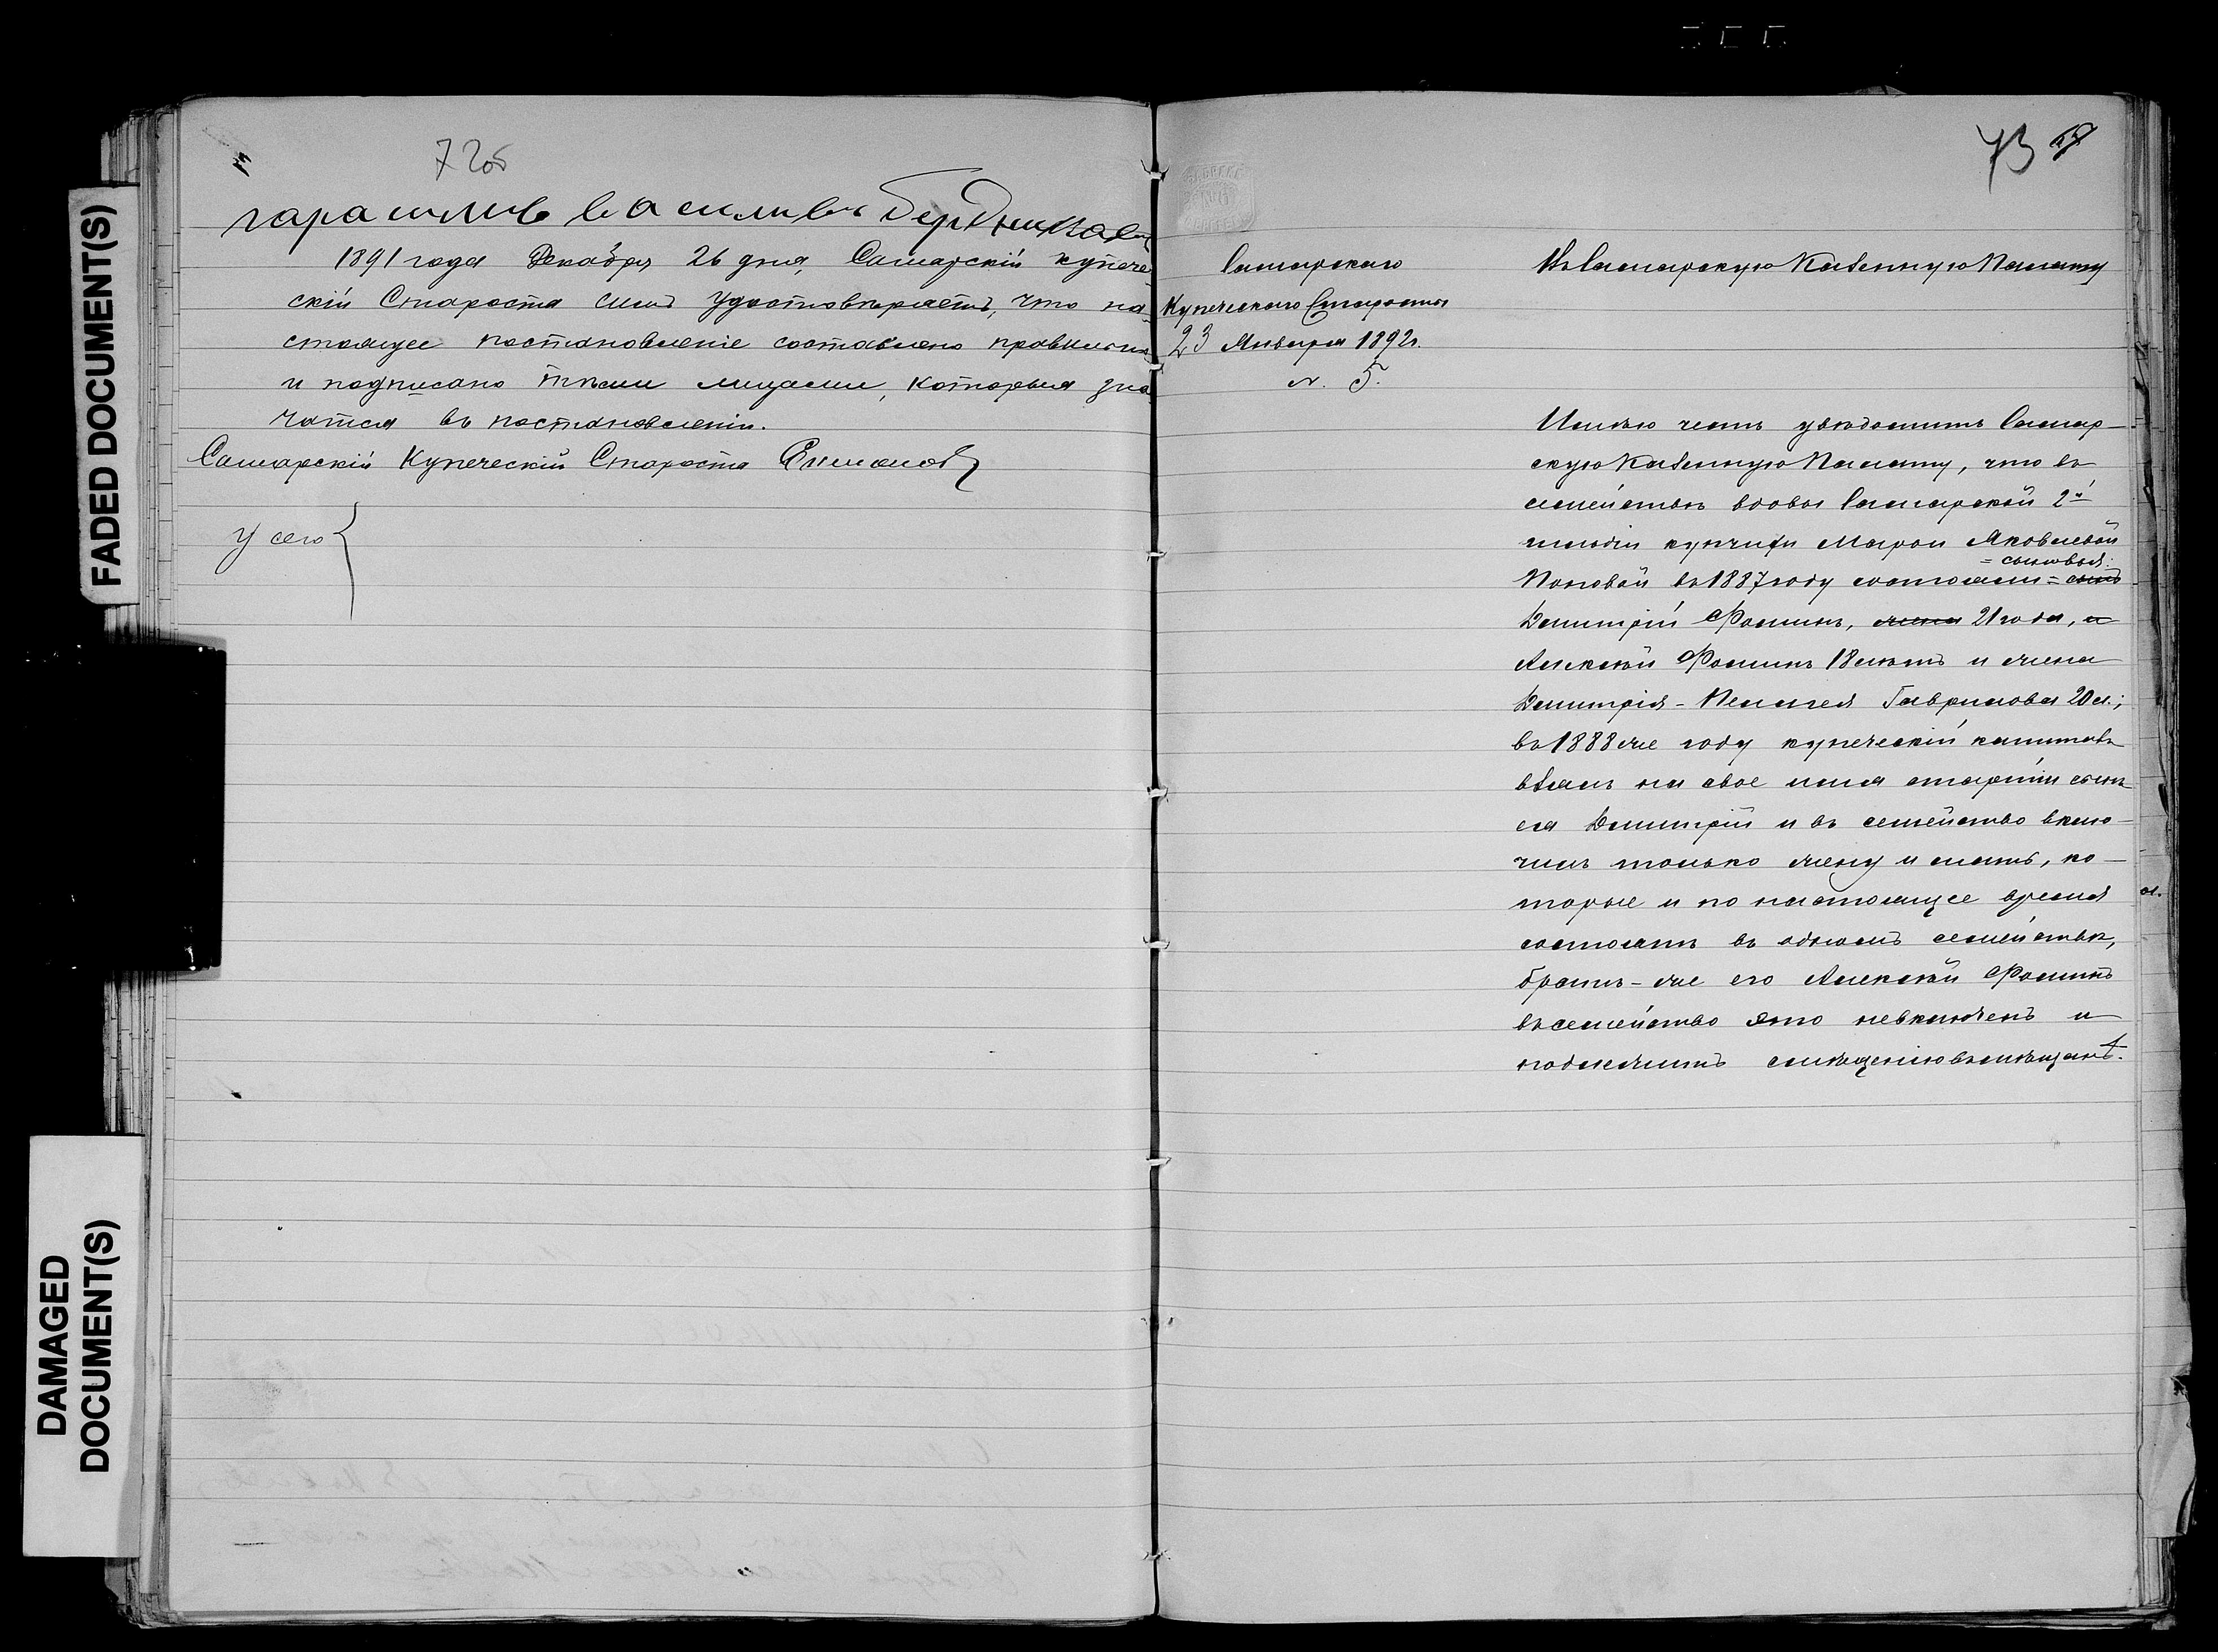 FADED DOCUMENT(S)
DAMAGED
DOCUMENT(S)
72об
гарасимъ василивъ бердниковъ
1891 года Декабря 26 дня, Самарскій купече
скій Староста симъ удостовѣряетъ, что на
стоящее постановленіе составлено правильно
и подписано тѣми лицами, которыя зна
чатся въ постановленіи.
Самарскій Купеческій Староста
У сего
73
Самарскаго
Купеческаго Старосты
23 Января 1892г.
N. 5.
Въ Самарскую Казенную Палату
Имѣю честь увѣдомить Самар-
скую Казенную Палату, что въ
семействѣ вдовы Самарской 2й
гильдіи купчихи Марѳы Яковлевой
= сыновья:
Поповой въ 1887 году состояли = сынъ
Димитрій Фоминъ, жена 21 года, и
Алексѣй Фоминъ 18 лѣтъ и жена
Димитрія - Пелагея Гаврилова 20 л.;
въ 1888 же году купеческій капиталъ
взялъ на свое имя старшій сынъ
ея Димитрій и въ семейство вклю-
чилъ только жену и мать, ко-
торые и по настоящее время
состоятъ въ одномъ семействѣ,
братъ-же его Алексѣй Фоминъ
въ семейство это невключенъ и
подлежитъ смѣщенію въ мѣщане.